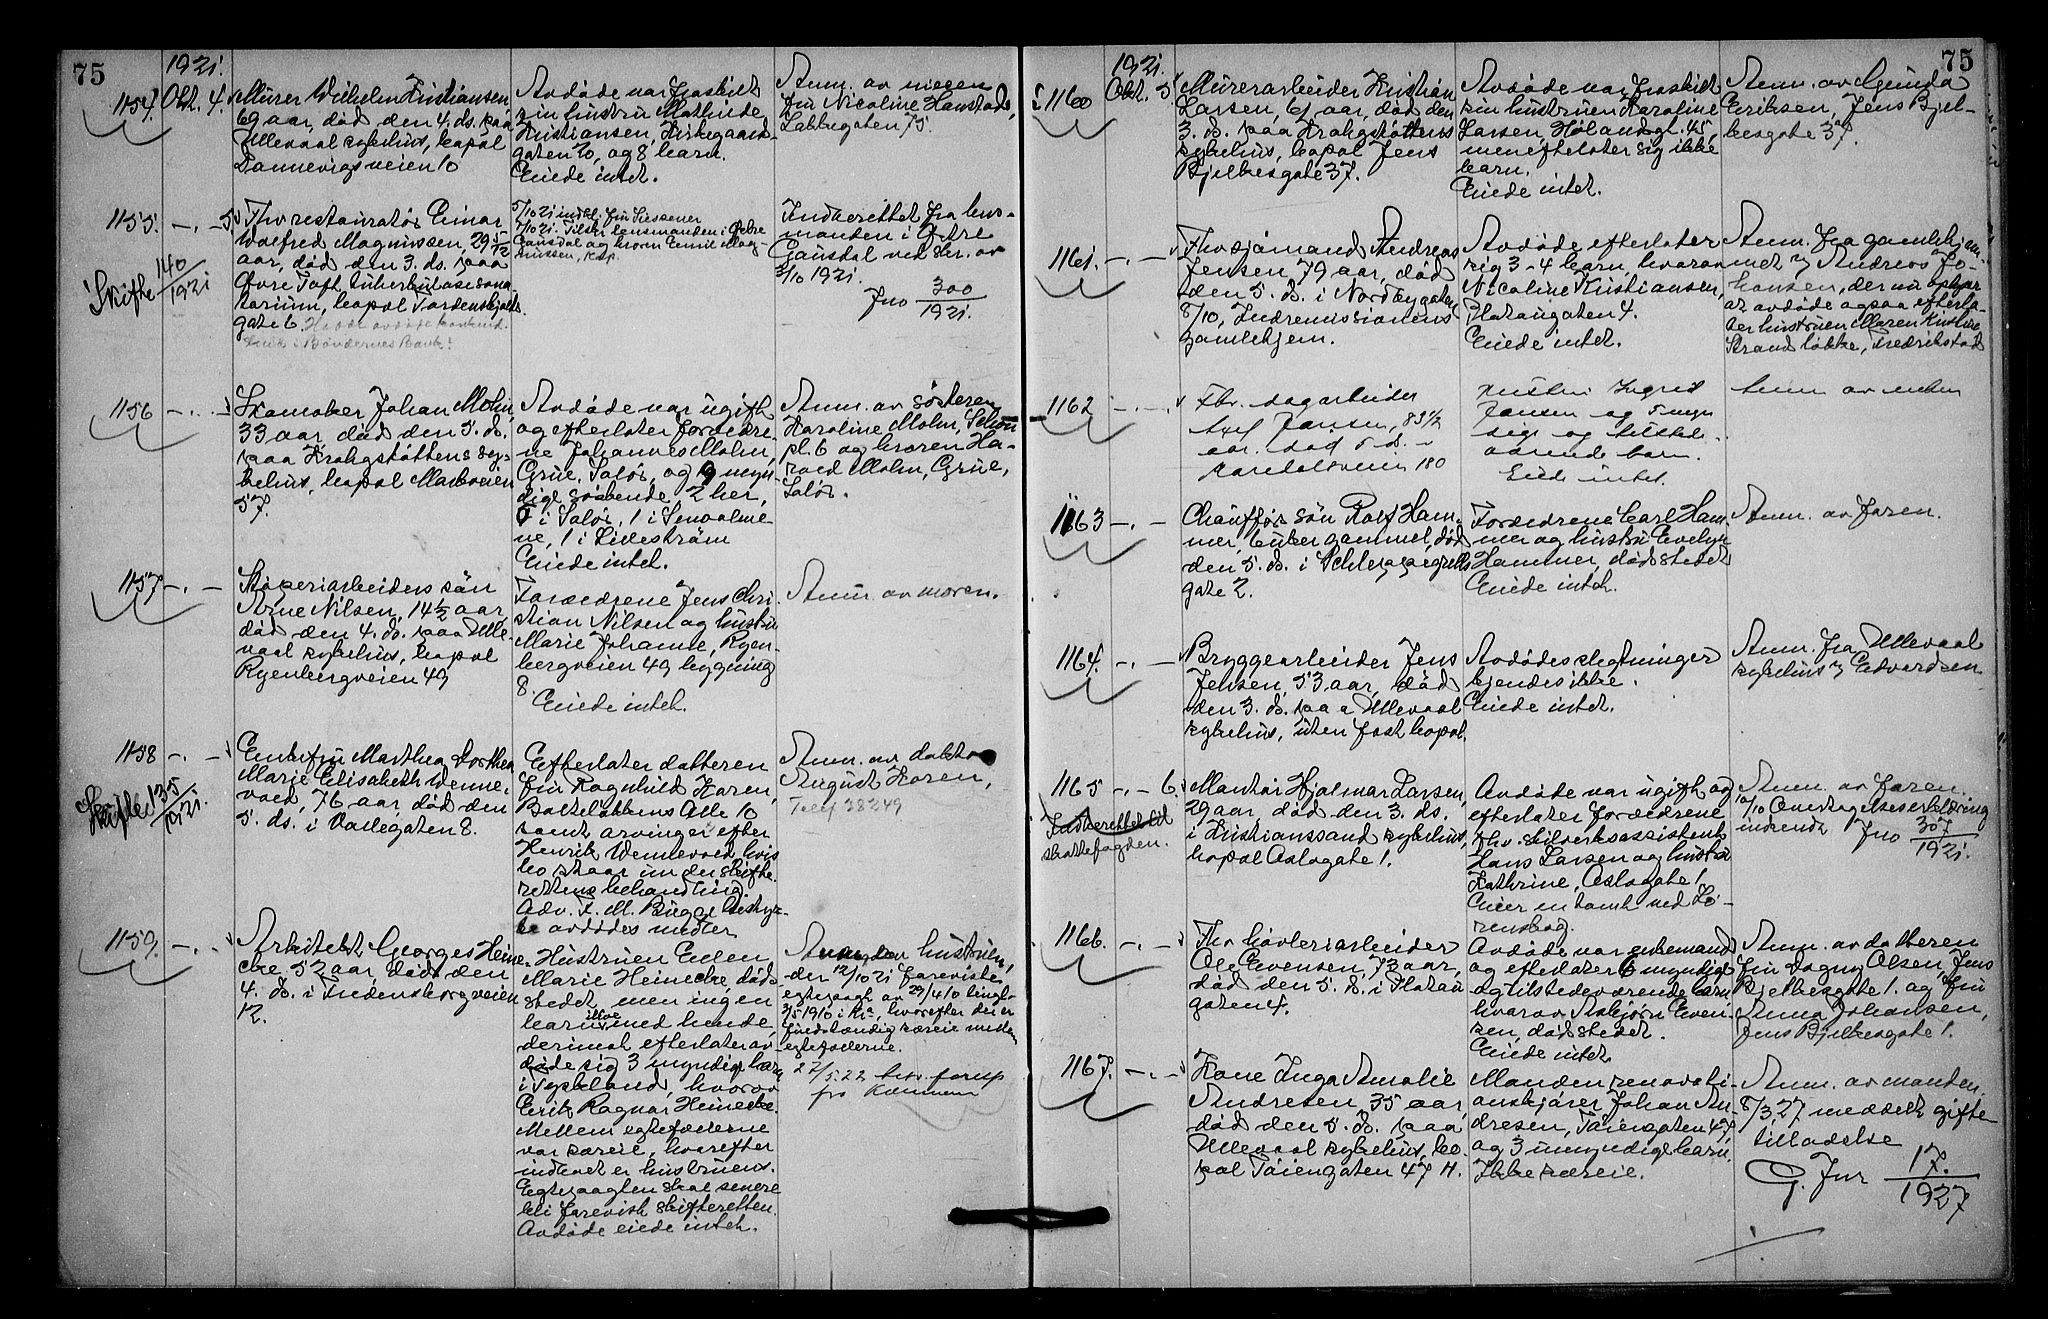 75
1921.
1154. Okt. 4.
Murer Wilhelm Kristiansen,
69 aar, død den 4. ds. paa
Ullevaal sykehus, bopæl
Dannevigsveien 10
Avdøde var fraskilt
sin hustru Mathilde
Kristiansen, Kirkegaards-
gaten 20, og 8 barn.
Eiede intet.
Anm. av niecen
fru Nicoline Hanstad,
gaten 75.
1155. -.- 5.
Skifte 140/1921
Fhv. restauratør Einar
Walfred Magnussen, 29 5/12
aar, død den 3. ds. paa
Øvre Toft tuberkulosesana-
torium, bopæl Tordenskjolds
gate 6.
i Bøndernes Bank!
5/10 21 indk. fru
/10 21. Tilskr. lensmanden i Østre
Gausdal og broren Emil Mag-
nussen,
Indberettet fra lens-
manden i Østre
Gausdal ved skr. av
3/10 1921.
Jno 300/1921.
1156 -.-
Skomaker Johan Mohn,
33 aar, død den 5. ds.
paa Krohgstøttens sy-
kehus, bopæl Markveien
57.
Avdøde var ugift
og efterlater forældre-
ne Johannes Mohn,
Grue, Solør, og 9 myn-
dige søskende, 2 her,
i Solør, 1 i
ne, 1 i Lillestrøm
Eiede intet.
Anm. av søsteren
Karoline Mohn, Schous
pl. 6 og broren Ha-
Mohn, Grue,
Solør.
1157 -.-
Støperiarbeiders søn
Arne Nilsen, 14 1/2 aar,
død den 4. ds. paa Ulle-
vaal sykehus, bopæl
Ryenbergveien 49
Forældrene Jens Chri-
stian Nilsen og hustru
Marie Johanne, Ryen-
bergveien 49 bygning
8.
Eiede intet.
Anm. av moren.
1158 -.-
Skifte 135/1921.
Enkefru Marthea Dorthea
Marie Elisabeth Wenne-
vold, 76 aar, død den
5. ds. i Vallegaten 8.
Efterlater datteren
fru Ragnhild Karen,
Alle 10
samt arvinger efter
Henrik Wennevold, hvis
bo staar under skifte-
rettens behandling.
Adv. F. M. Bugge bestyr-
er avdødes midler
Anm. av doktor
August Koren,
Telef 38249
1159. -.-
Arkitekt Georges Heine-
cke, 52 aar, død den
4. ds. i Fredensborgveien
12.
Hustruen Ellen
Marie Heinecke, død-
stedet, men ingen
barn ilive med hende,
derimot efterlater av-
døde sig 3 myndige barn
i Tyskland, hvorav
Erik Ragnar Heinecke.
Mellem egtefællerne
var særeie, hvorefter
indboet er hustruens.
Egtepagten skal senere
bli forevist skifteretten.
Avdøde eiede intet.
Anm. av hustruen,
der 12/10 21 foreviste
egtepagt av 29/4 10 tingl.
3/5 1910 i Kra, hvorefter der er
fuldstændig særeie mellem
egtefællerne.
22/5.22 bev. foresp
fra Kæmnern
75
1921.
1160 Okt. 5
Murerarbeider Kristian
Larsen, 61 aar, død den
3. ds. paa Krohgstøttens
sykehus, bopæl Jens
Bjelkesgate 37.
Avdøde var fraskilt
sin hustruen Karoline
Larsen, Hølandsgt. 45,
men efterlater sig ikke
barn.
Eiede intet.
Anm. av Gunda
Eriksen, Jens Bjel-
kesgate 37.
1161. -.-
Fhv. sjømand Andreas
Jensen, 79 aar, død
den 5. ds. i Nordbygaten
8/10, Indremissionens
gamlehjem.
Avdøde efterlater
sig 3-4 barn, hvorav
Nicoline Kristiansen,
Platougaten 4.
Eiede intet.
Anm. fra gamlehjem-
met v/ Andreas Jo-
hansen, der nu opgir
at avdøde ogsaa efterla-
ter hustruen Maren Kirstine
Strand løkke, Fredrikstad
1162 -.-
Fhv. dagarbeider
Axel Jansen, 83 1/2
aar. død 5 d. -
Maridalsveien 180
Hustru Ingrid
Jansen og 5 myn
dige og tilstede-
værende barn.
Eiede intet.
Anm. av enken
1163 -.-
Chauffør søn Rolf Ham-
mer, 6 uker gammel, død
den 5. ds. i Schleppegrells
gate 2.
Forældrene Carl Ham-
mer og hustru Evelyn
Hammer, dødsstedet
Eiede intet.
Anm. av faren.
1164. -.-
Bryggearbeider Jens
Jensen, 53 aar, død
den 3. ds. paa Ullevaal
sykehus, uten fast bopæl.
Avdødes slegtninger
kjendes ikke.
Eiede intet.
Anm. fra Ullevaal
sykehus v/ Edvardsen
1165 -.- 6.
Indberettet til
skattefogden.
Montør Hjalmar Larsen,
29 aar, død den 3. ds.
i Kristianssand sykehus,
bopæl Oslogate 1.
Avdøde var ugift og
efterlater forældrene
fhv. skilverksassistent
Hans Larsen og hustru
Kathrine, Oslogate 1.
Eier en tomt ved Lø-
renskog.
Anm. av faren.
10/10 Overtagelseserklæring
indsendt
Jno 307/1921.
1166. -.-
Fhv. høvleriarbeider
Ole Evensen, 73 aar,
død den 5. ds. i Platou
gaten 4.
Avdøde var enkemand
og efterlater 6 myndige
og tilstedeværende barn
hvorav Asbjørn Even-
sen, dødsstedet.
Eiede intet
Anm. av datteren
fru Dagny Olsen, Jens
Bjelkesgate 1. og fru
Anna Johansen,
Jens Bjelkesgate 1.
1167. -.-
Kone Inga Amalie
Andresen, 35 aar,
død den 5. ds. paa
Ullevaal sykehus, bo-
pæl Tøiengaten 47 H.
Manden renovati-
onskjører Johan An-
dresen, Tøiengaten 47,
og 3 umyndige barn.
Ikke særeie.
Anm. av manden.
8/3.27 meddelt gifte
tilladelse
G. Jnr 17./1927